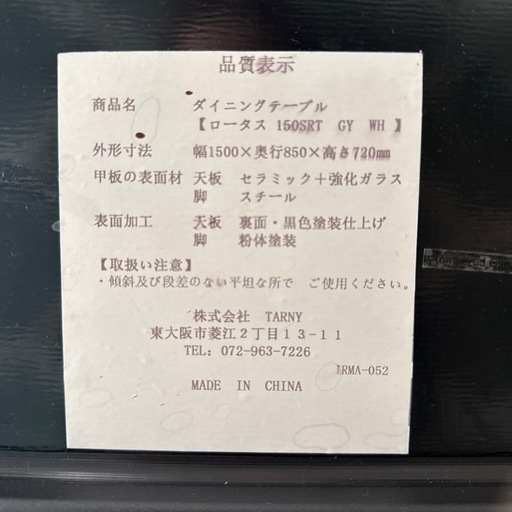 品質表示
商品名 ダイニングテーブル
【ロータス 150SRT GY WH】
外形寸法 幅1500×奥行850×高さ720mm
甲板の表面材 天板 セラミック＋強化ガラス
脚 スチール
表面加工 天板 裏面・黒色塗装仕上げ
脚 粉体塗装
【取扱い注意】
・傾斜及び段差のない平坦な所で ご使用ください。
株式会社 TARNY
東大阪市菱江２丁目１３-１１
TEL: 072-963-7226
ARMA-052
MADE IN CHINA